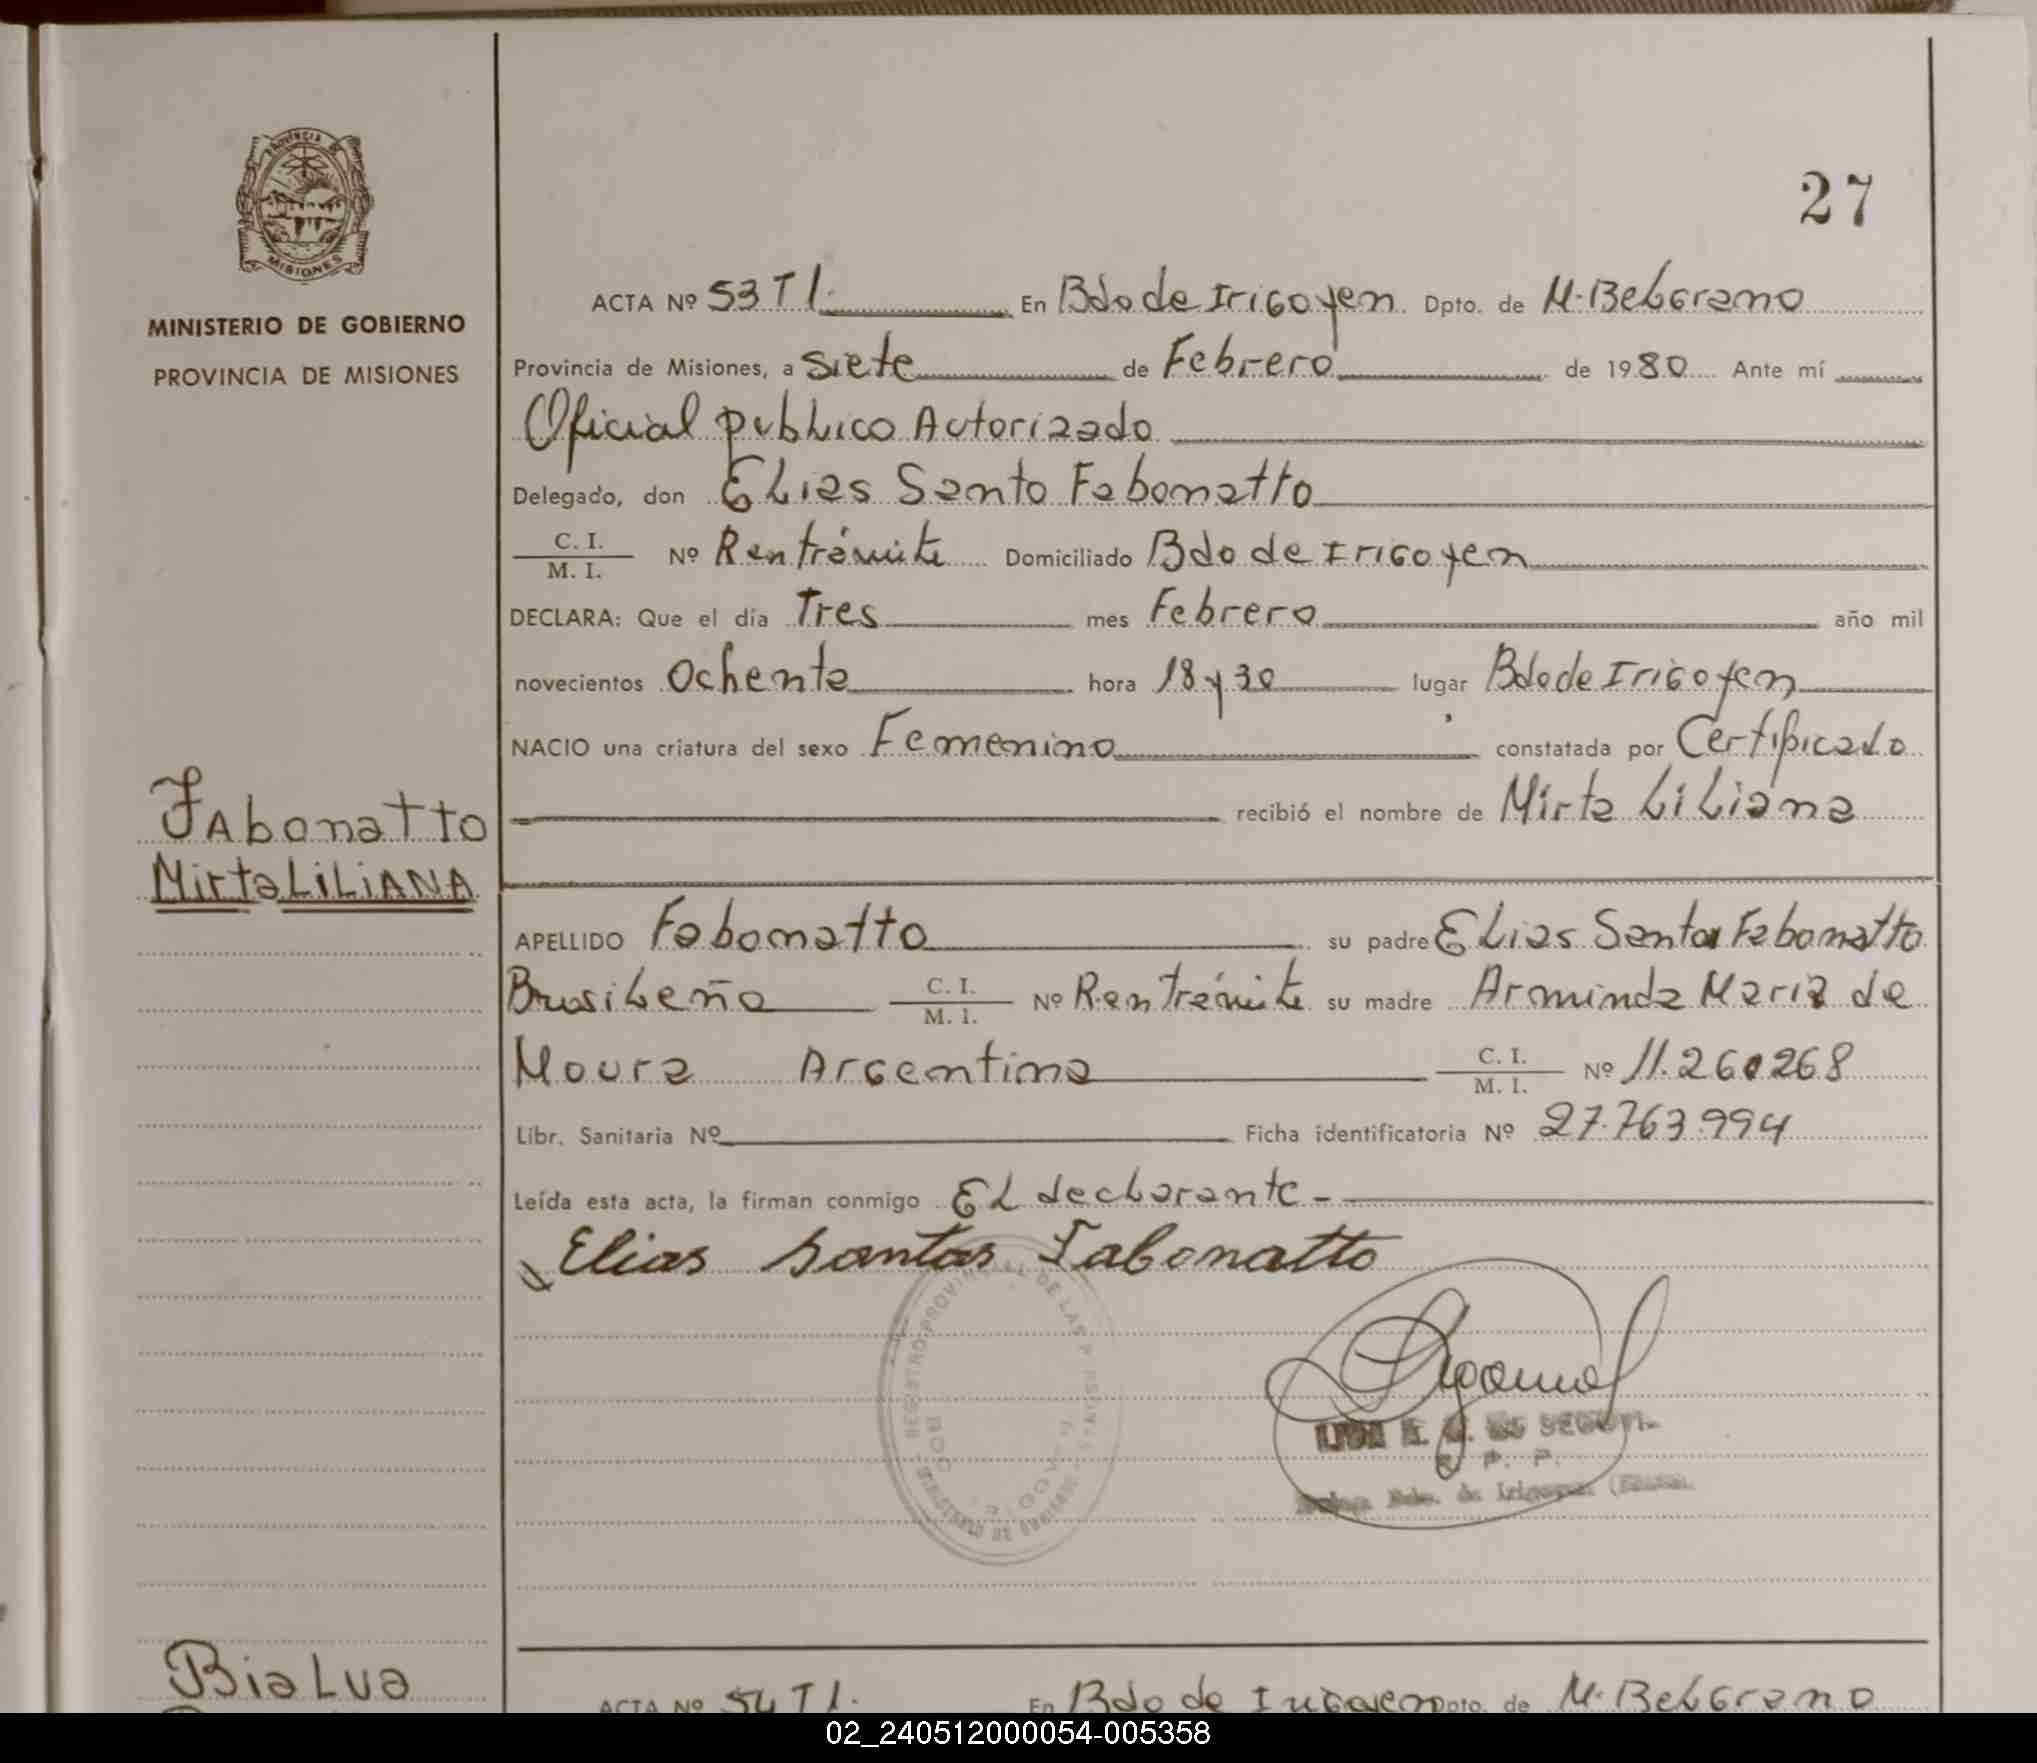 27
PROVINCIA DE
MISIONES
MINISTERIO DE GOBIERNO
PROVINCIA DE MISIONES
ACTA Nº 53 T I. En Bdo de Irigoyen. Dpto. de M. Belgrano
Provincia de Misiones, a siete de Febrero de 1980 Ante mí
Oficial publico Autorizado
Delegado, don Elias Santo Fabonatto
C. I.
M. I. Nº R en trámite Domiciliado Bdo de Irigoyen
DECLARA: Que el día Tres mes Febrero año mil
novecientos Ochenta hora 18 y 30 lugar Bdo de Irigoyen
NACIO una criatura del sexo Femenino constatada por Certificado
recibió el nombre de Mirta Liliana
Fabonatto
Mirta LILIANA
APELLIDO Fabonatto su padre Elias Santos Fabonatto
Brasileño C. I.
M. I. Nº R en trámite su madre Arminda Maria de
Moura Argentina C. I.
M. I. Nº 11.260268
Libr. Sanitaria Nº Ficha identificatoria Nº 27.763.994
Leída esta acta, la firman conmigo El declarante -
Elias Santos Fabonatto
REGISTRO PROVINCIAL DE LAS PERSONAS
MINISTERIO DE GOBIERNO
Bdo. de Irigoyen
Bialua
ACTA Nº 54 T I. En Bdo de Irigoyen Dpto. de M. Belgrano
02_240512000054-005358